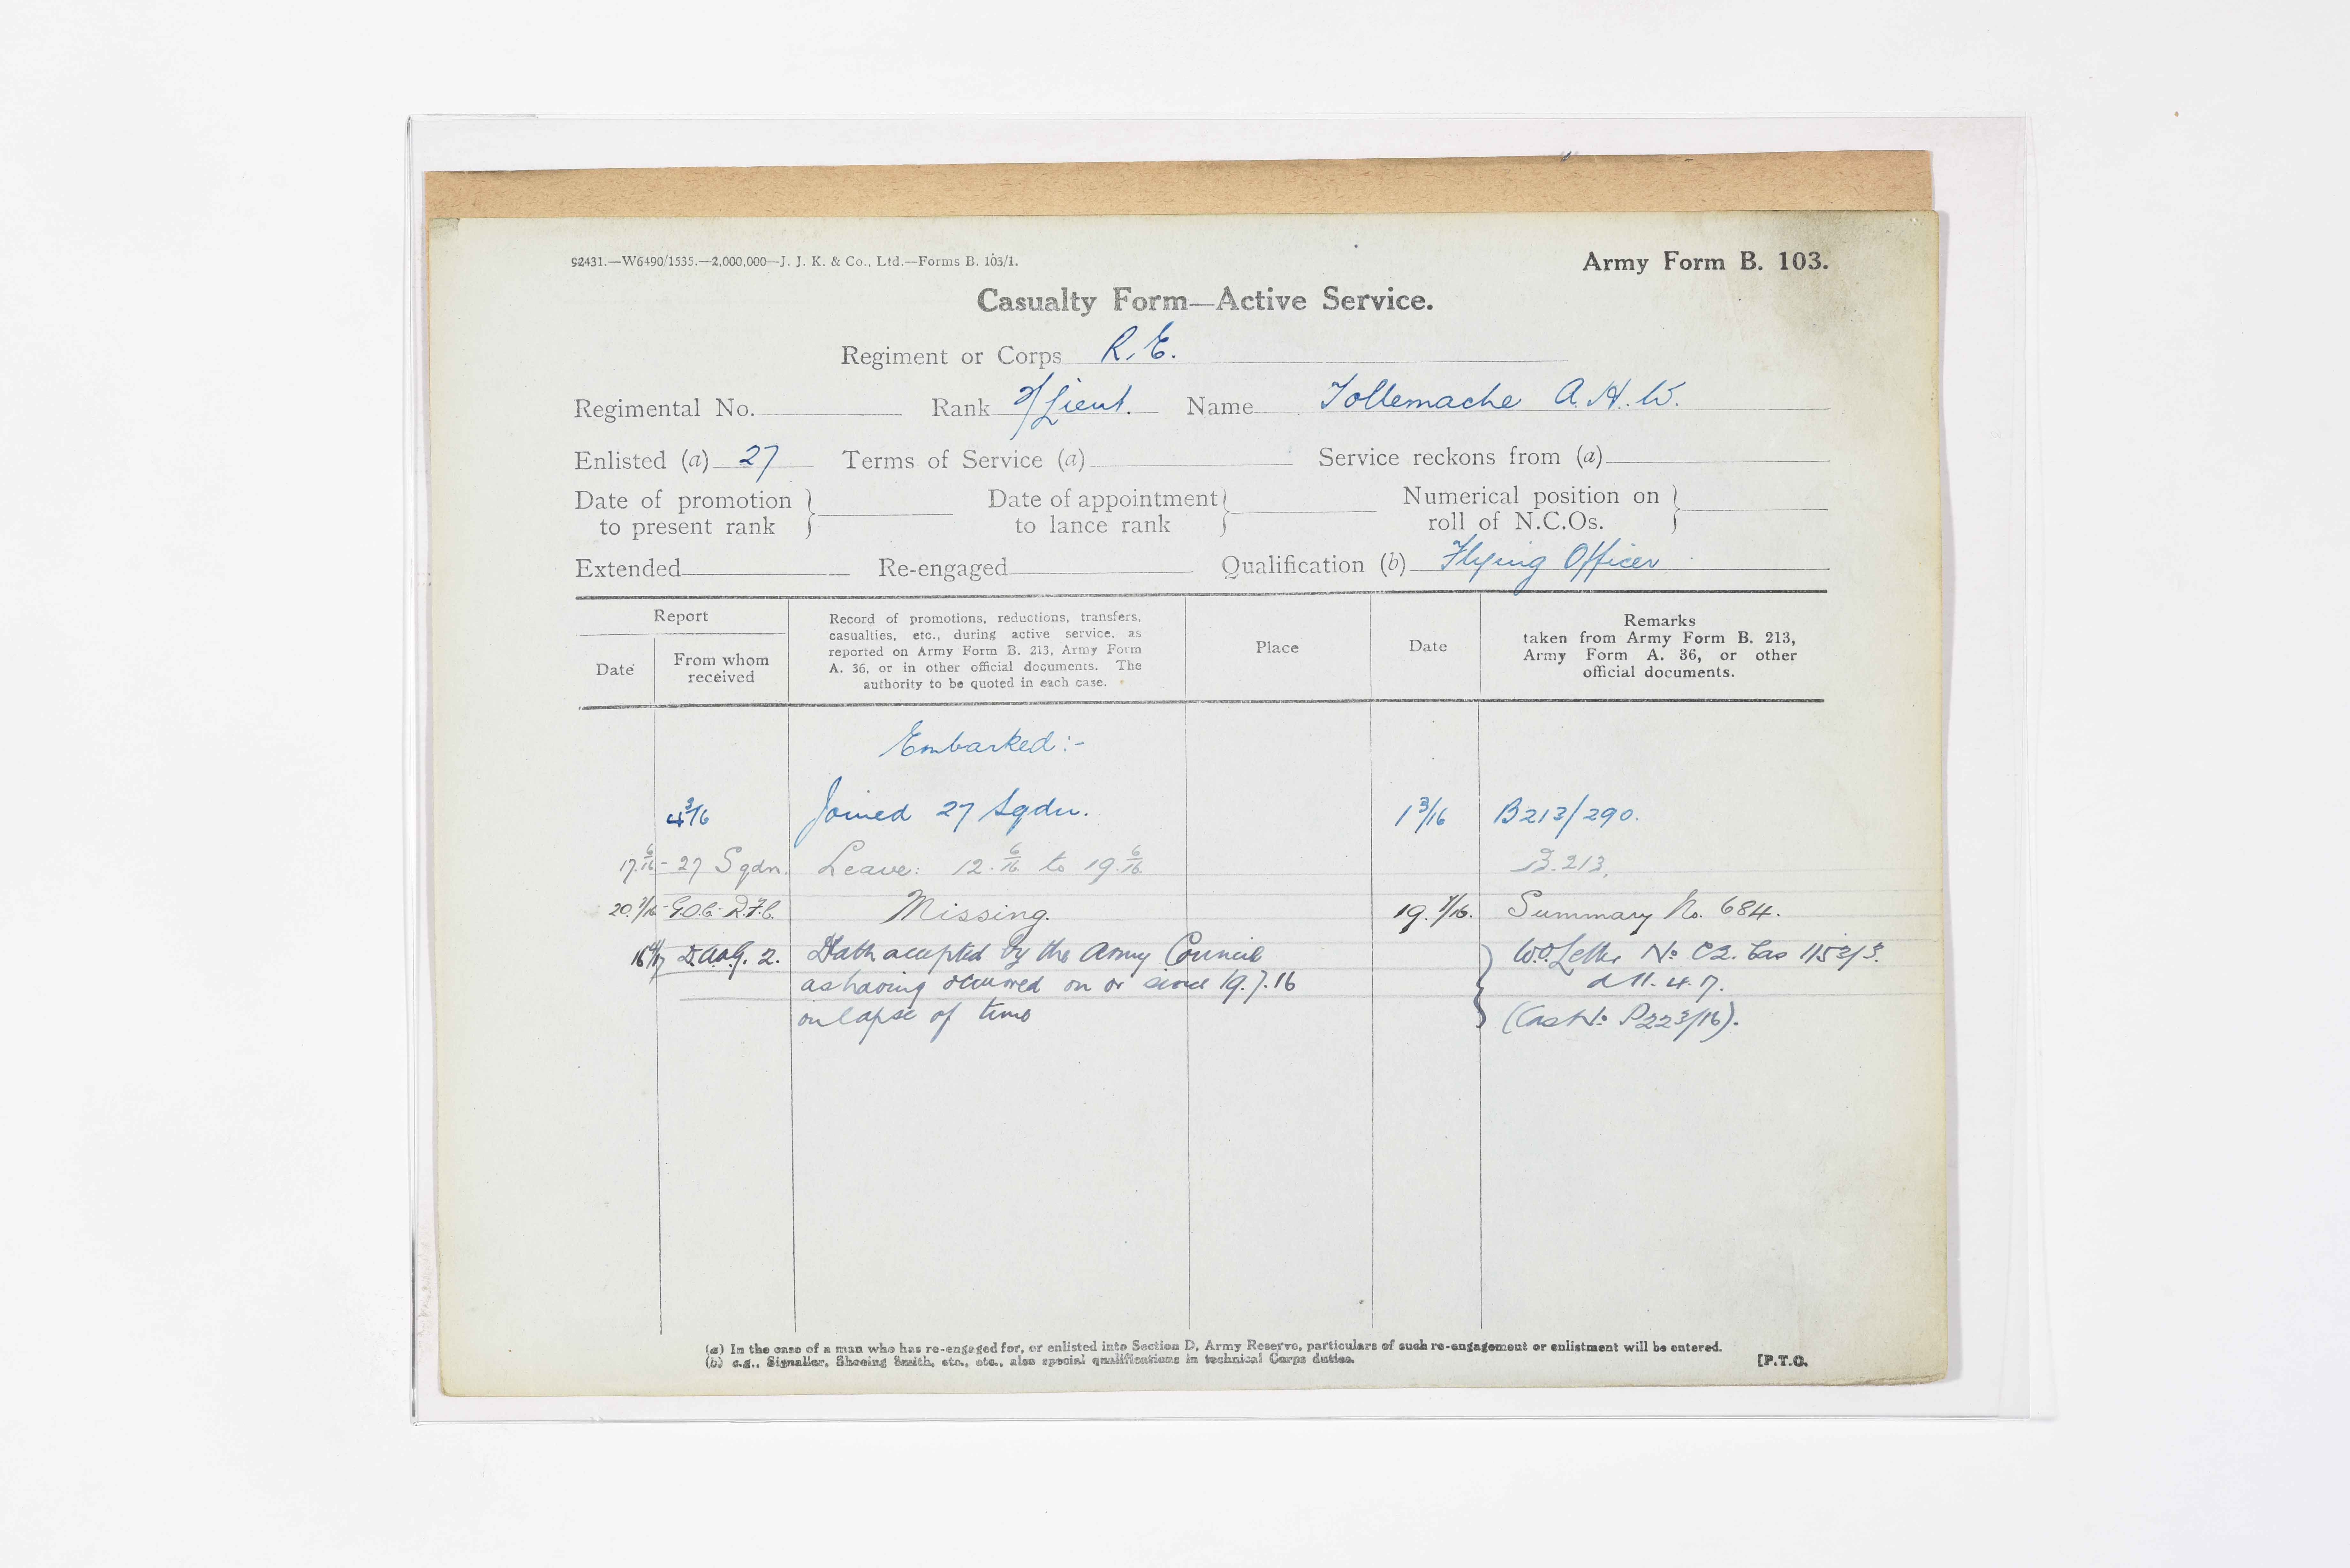 92431.—W6490/1535.—2,000,000—J. J. K. & Co., Ltd.—Forms B. 103/1.
Army Form B. 103.
Casualty Form—Active Service.
Regiment or Corps R.E.
Regimental No. Rank T/Lieut. Name Tollemache A.H.W.
Enlisted (a) 27 Terms of Service (a) Service reckons from (a)
Date of promotion to present rank } Date of appointment to lance rank } Numerical position on roll of N.C.Os. }
Extended Re-engaged Qualification (b) Flying Officer
Report
Date
From whom
received
Record of promotions, reductions, transfers,
casualties, etc., during active service, as
reported on Army Form B. 213, Army Form
A. 36, or in other official documents. The
authority to be quoted in each case.
Place
Date
Remarks
taken from Army Form B. 213,
Army Form A. 36, or other
official documents.
Embarked:-
4 3/16 Joined 27 Sqdn. 1 3/16 B213/290.
17. 6/16 - 27 Sqdn. Leave: 12. 6/16 to 19. 6/16 B.213.
20. 7/16 - G.O.C. R.F.C. Missing. 19. 7/16. Summary No. 684.
16 4/17 D.A.A.G. 2. Death accepted by the Army Council W.O. Letter No C2. Cas 1153/3.
as having occurred on or since 19.7.16 d 11.4.17.
on lapse of time (Cas No P223/16).
(a) In the case of a man who has re-engaged for, or enlisted into Section D, Army Reserve, particulars of such re-engagement or enlistment will be entered.
(b) e.g., Signaller, Shoeing Smith, etc., etc., also special qualifications in technical Corps duties.
[P.T.O.